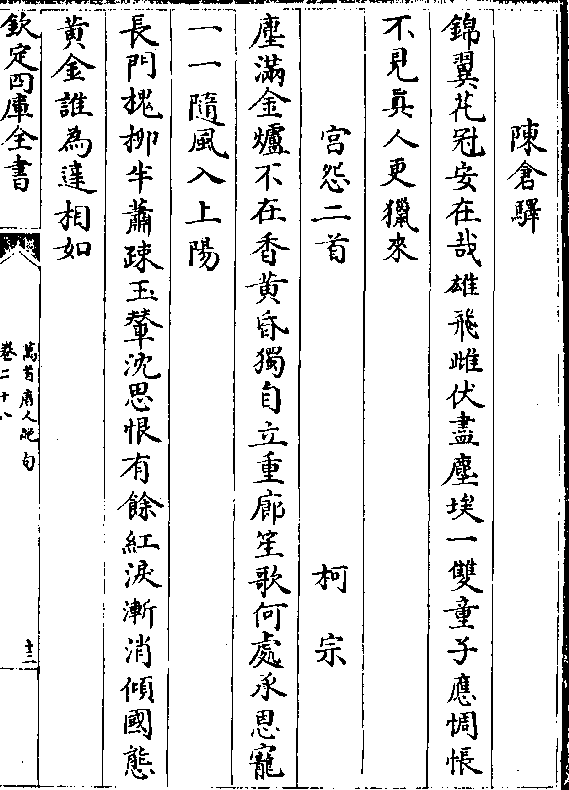 陳倉驛
錦翼花冠安在哉雄飛雌伏盡塵埃一雙童子應惆悵
不見真人更獵來
宮怨二首 柯宗
塵滿金爐不在香黄昏獨自立重廊笙歌何處承恩寵
一一隨風入上陽
長門槐栁半蕭疎玉輦沈思恨有餘紅淚漸消傾國態
黄金誰為達相如
欽定四庫全書
萬首唐人絶句
卷二十八
十二